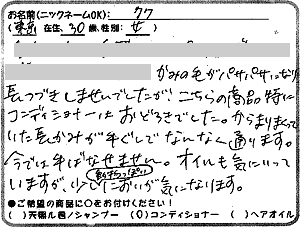 お名前(ニックネームOK): クク
(東京)在住、30歳、性別: 女)
かみの毛がパサパサになり
長つづきしませんでしたが、こちらの商品特に
コンディショナーにはおどろきでした。からまりまくって
いた長かみが手ぐしでなんなく通ります。
今では手ばなせません。オイルも気に入って
いますが、少しにおいが気になります。
●ご希望の商品に○をお付けください!
( )天然ル・シャンプー (○)コンディショナー ( )ヘアオイル